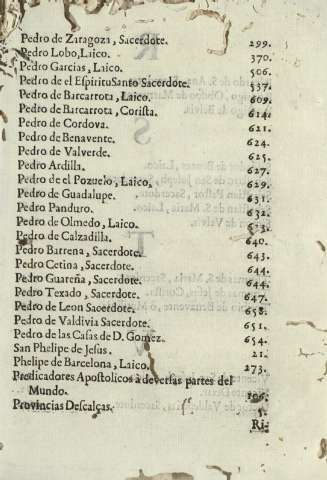 Pedro de Zaragoza, Sacerdote. 299.
Pedro Lobo, Laico. 370.
Pedro Garcias, Laico. 506.
Pedro de el Espiritu Santo Sacerdote. 537.
Pedro de Barcarrota, Laico. 609.
Pedro de Barcarrota, Corista. 614.
Pedro de Cordova. 621.
Pedro de Benavente. 624.
Pedro de Valverde. 625.
Pedro Ardilla. 627.
Pedro de el Pozuelo, Laico. 629.
Pedro de Guadalupe. 631.
Pedro Panduro. 632.
Pedro de Olmedo, Laico.
Pedro de Calzadilla. 640.
Pedro Barrena, Sacerdote. 643.
Pedro Cetina, Sacerdote. 644.
Pedro Guareña, Sacerdote. 644.
Pedro Texado, Sacerdote. 647.
Pedro de Leon Sacerdote. 658.
Pedro de Valdivia Sacerdote. 651.
Pedro de las Casas de D. Gomez. 654.
San Phelipe de Jesus. 21.
Phelipe de Barcelona, Laico. 273.
Predicadores Apostolicos à deversas partes del
Mundo.
Provincias Descalças. 1.
Ri-